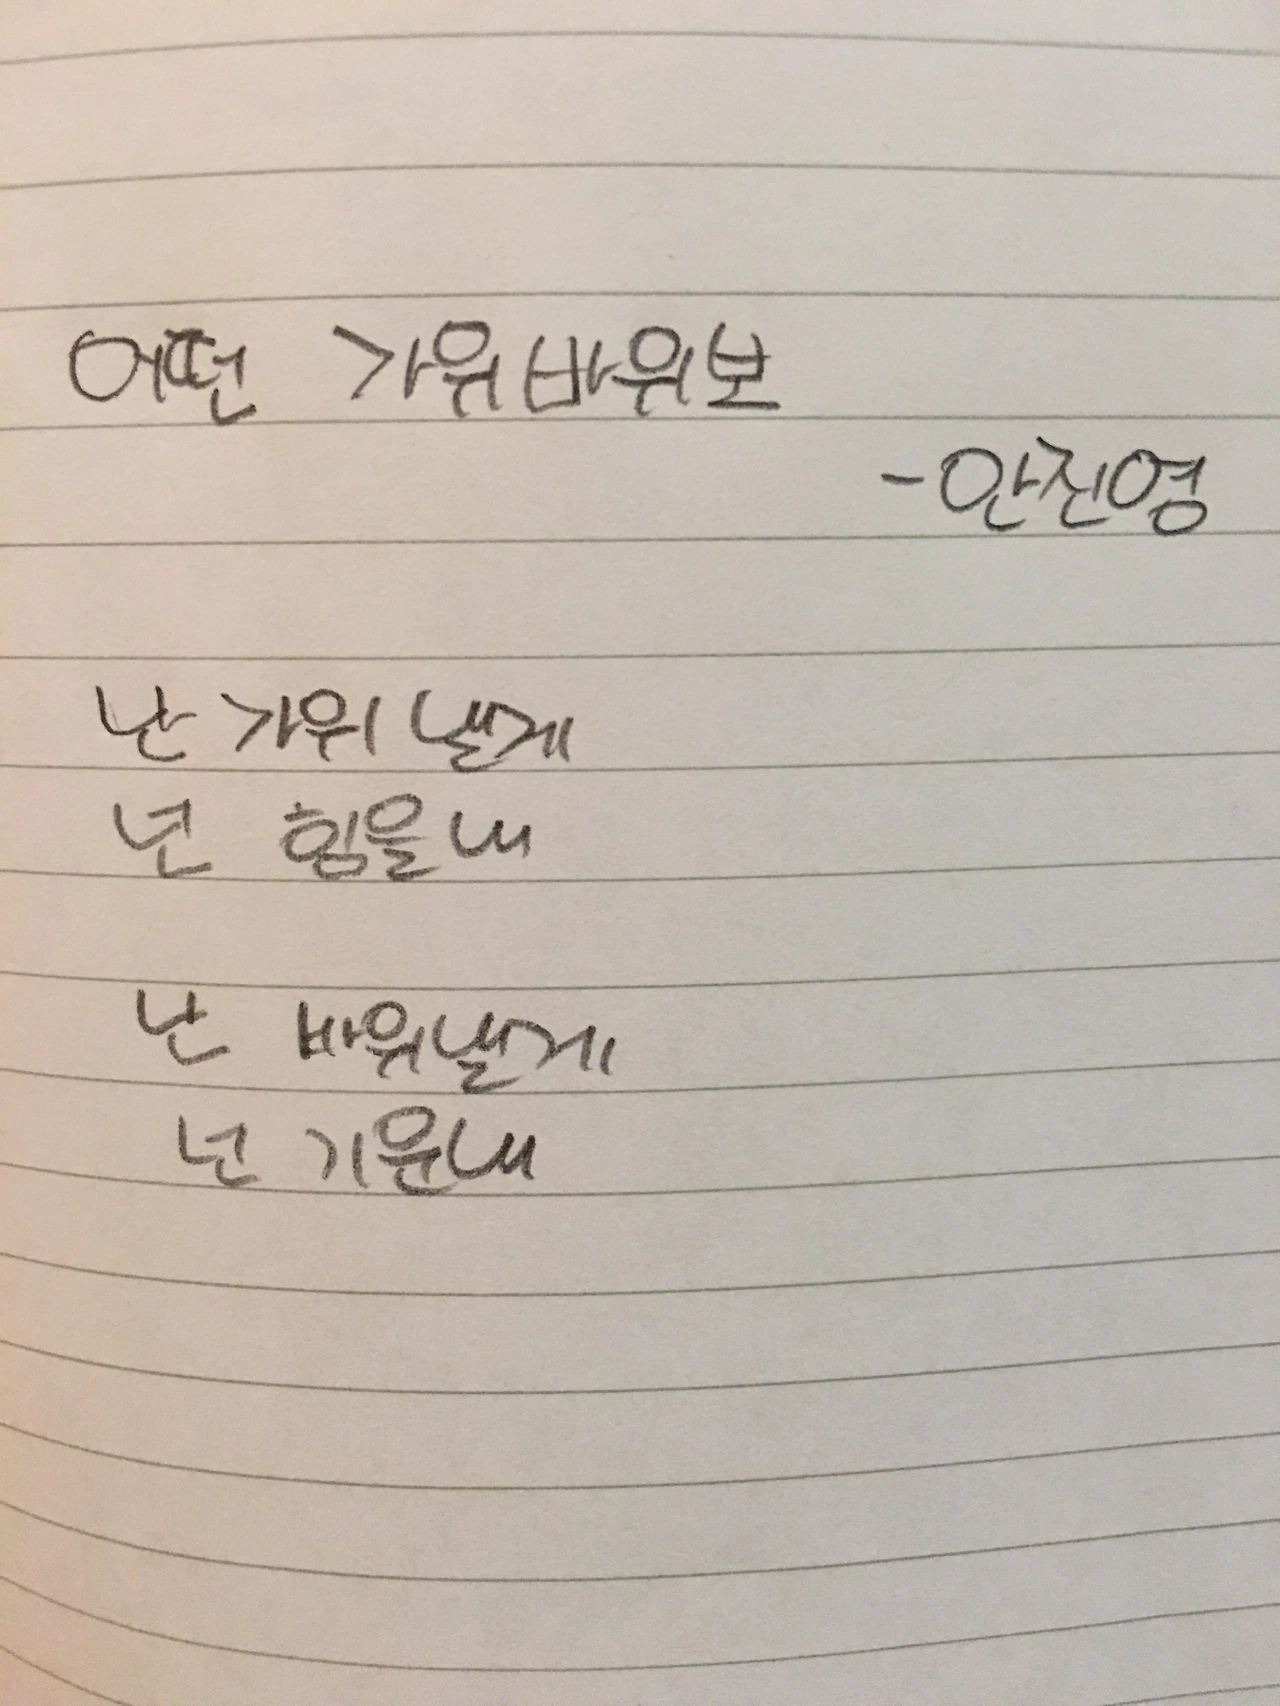 어떤 가위바위보
-안진영
난 가위 낼게
넌 힘을 내
난 바위낼게
넌 기운내